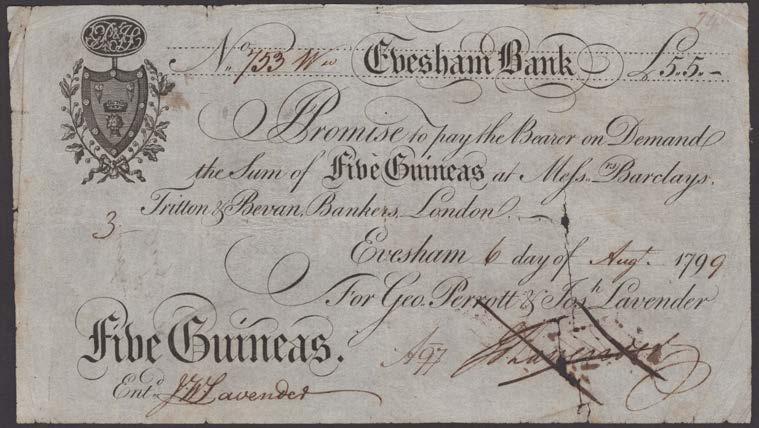 No. 753 Evesham Bank £5.5.-
Promise to pay the Bearer on Demand
the Sum of Five Guineas at Messrs. Barclays,
Tritton & Bevan, Bankers, London.
3
Evesham 6 day of Augt. 1799
For Geo. Perrott & Josh. Lavender
Five Guineas.
Lavender
Entd. Lavender